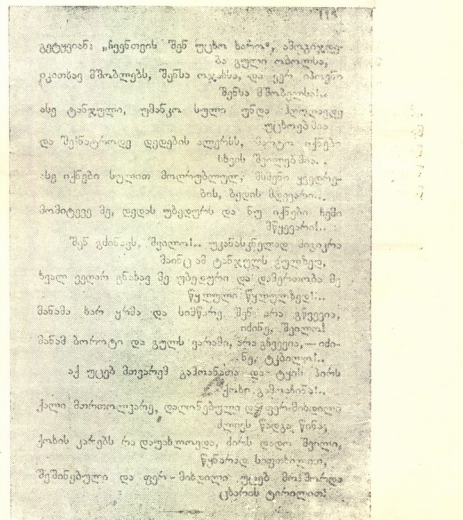 გეტყვიან: „ჩვენთვის შენ უცხო ხარო“, ამოგიჯდე-
ბა გული ობოლსა,
იკითხავ მშობლებს, შენსა ოჯახსა, და ვერ იპოვნი
შენსა მშობელსა!..
ასე ტანჯული, უმანკო სული უნდა
უცხოებ შია
და შენატროდე დედების ალერსს, მარტო იქნები
სხვის შვილებ შია..
ასე იქნები სულით მოღრუბლულ, მსმენი ყვედრე-
ბის, ბედის მდევარი..
მომიტევე მე, დედას უბედურს და ნუ იქნები ჩემი
მწყევარი!..
შენ გძინავს, შვილო!.. უკანასკნელად მიგიკრა
მაინც ამ ტანჯულს გულზედ,
ხვალ ველარ გნახავ მე უბედური და დამერთობა მე
წყლული წყლულზედ!..
მანამა ხარ ყრმა და სიმწარე შენ არა გწვევია,
იძინე, შვილო!
მანამ ბოროტი და გულს ვარამი, არა გჩვევია, — იძი-
ნე, ტკბილო!..
აქ უცებ მთვარემ გამოანათა და ტყის პირს
ქოხი გამოაჩინა!..
ქალი მთრთოლვარე, დაღონებული და ფერ-მიხდილი
ძლივს წადგა წინა;
ქოხის კარებს რა დაუახლოვდა, ძირს დადო შვილი,
წყნარად საფთხილით,
შეშინებული და ფერ-მიხდილი უცებ მოშორდა
ცხარის ტირილით!